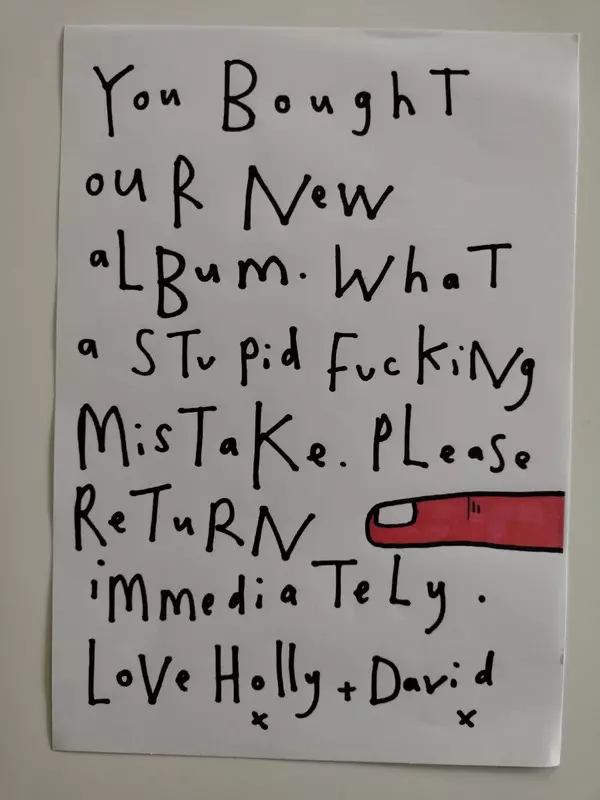 You BoughT
ouR NeW
aLBum. WhaT
a STupid FucKiNg
MisTaKe. PLease
ReTuRN
immediaTeLy.
LoVe Holly + David
x x